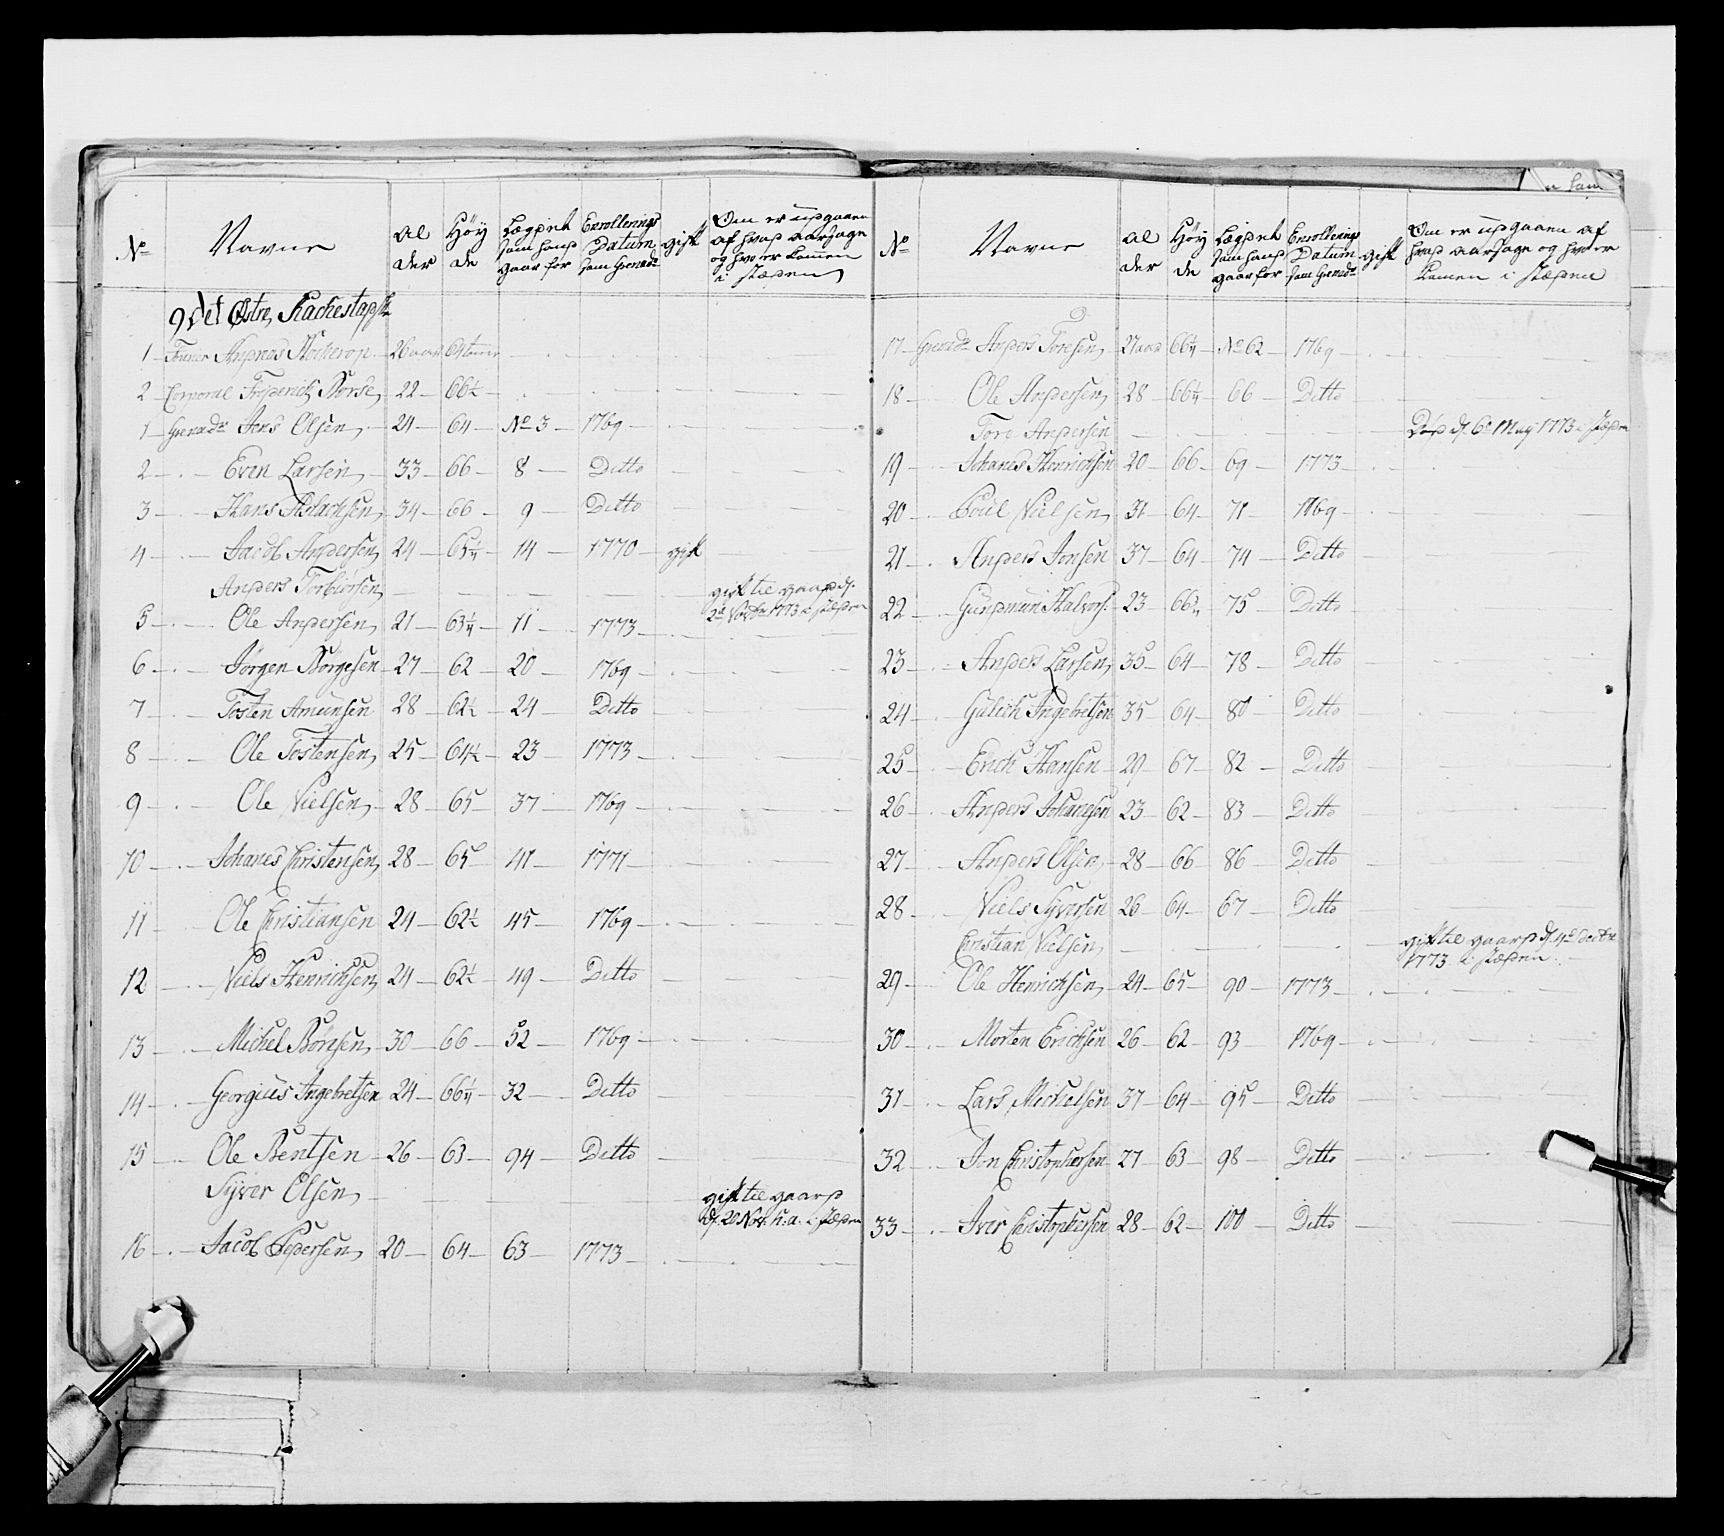 No
Navne
Al der
Høy de
Lægdet som hand gaar for
Enrollerings Datum som Grenadr
gift
Om er udgaaen af hvad aarsage og hvo er komen i stæden
9 det Østre
1 Andreas 26 aar
2 Corporal Friderich Borse 22 66½
1 Grenadr Jens Olsen 24 64 No 3 1769
2 Even Larsen 33 66 8 Ditto
3 Hans Aslachsen 34 66 9 Ditto
4 Jacob Andersen 24 65¼ 14 1770 gift
Anders Torbiørsen gik til gaard d. 2de Novbr 1773 i stæden
5 Ole Andersen 21 63¼ 11 1773
6 Jørgen Børgesen 27 62 20 1769
7 Tosten Amunsen 28 62½ 24 Ditto
8 Ole Tostensen 25 61½ 23 1773
9 Ole Nielsen 28 65 37 1769
10 Johanes Christensen 28 65 41 1771
11 Ole Christiansen 24 62½ 45 1769
12 Niels Henrichsen 24 62½ 49 Ditto
13 Michel Børesen 30 66 52 1769
14 Georgius Ingebretsen 24 66¼ 32 Ditto
15 Ole Bentsen 26 63 94 Ditto
Syver Olsen gik til gaard d. 20 Nov. h: a: i stæden
16 Jacob Pedersen 20 64 63 1773
No
Navne
Al der
Høy de
Lægdet som hand gaar for
Enrollerings Datum som Grenadr
gift
Om er udgaaen af hvad aarsage og hvo er komen i stæden
17 Grenadr Anders Toresen 27 aar 66¼ No 62 1769
18 Ole Andersen 28 66¼ 66 Ditto
Tore Andersen Død d. 6te May 1773 i stæden
19 Johanes Henrichsen 20 66 69 1773
20 Poul Nielsen 31 64 71 1769
21 Anders Jonsen 37 64 74 Ditto
22 Gundmun Halvors: 23 66¼ 75 Ditto
23 Anders Larsen 35 64 78 Ditto
24 Gulich Ingebretsen 35 64 80 Ditto
25 Erich Hansen 29 67 82 Ditto
26 Anders Johansen 23 62 83 Ditto
27 Anders Olsen 28 66 86 Ditto
28 Niels Syversen 26 64 67 Ditto
Christian Nielsen gik til gaard d. 4de Decbr 1773 i stæden
29 Ole Henrichsen 24 65 90 1773
30 Morten Erichsen 26 62 93 1769
31 Lars Michelsen 37 64 95 Ditto
32 Jon Christophersen 27 63 98 Ditto
33 Iver Christophersen 28 62 100 Ditto